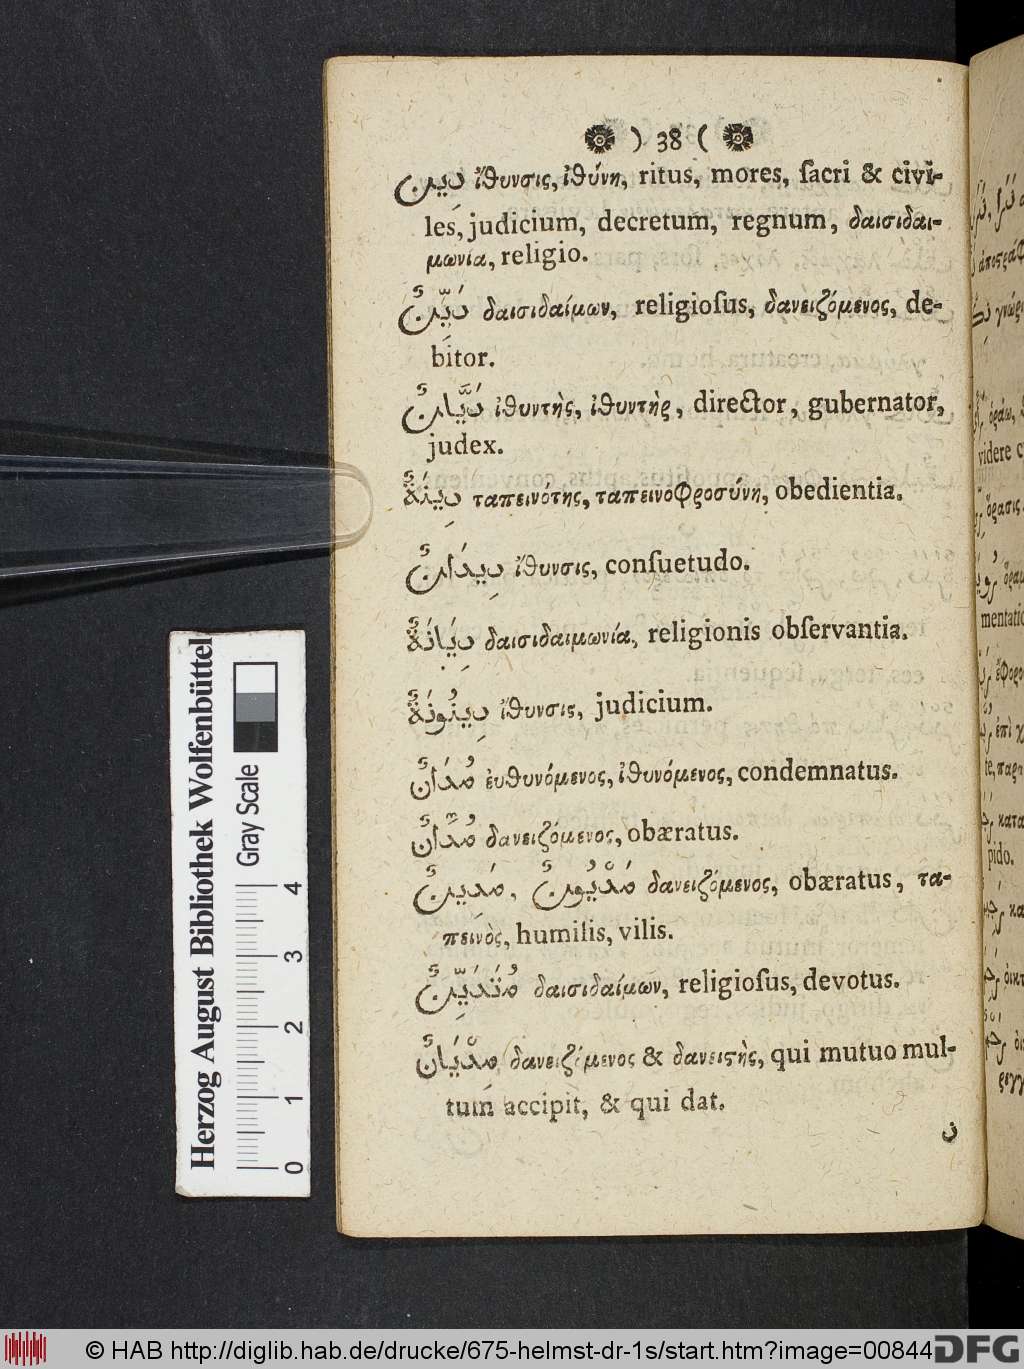 ) 38 (
دِينٌ ἴθυνσις, ἰθύνη, ritus, mores, ſacri & civi-
les, judicium, decretum, regnum, δαισιδαι-
μωνία, religio.
دَيِّنٌ δαισιδαίμων, religioſus, δανειζόμενος, de-
bitor.
دَيَّانٌ ἰθυντὴς, ἰθυντὴρ, director, gubernator,
judex.
دِينَةٌ ταπεινότης, ταπεινοφροσύνη, obedientia.
دِيدَانٌ ἴθυνσις, conſuetudo.
دِيَانَةٌ δαισιδαιμωνία, religionis obſervantia.
دِينُونَةٌ ἴθυνσις, judicium.
مُدَانٌ ἐυθυνόμενος, ἰθυνόμενος, condemnatus.
مُدَّانٌ δανειζόμενος, obæratus.
مَدِينٌ, مَدْيُونٌ δανειζόμενος, obæratus, τα-
πεινὸς, humilis, vilis.
مُتَدَيِّنٌ δαισιδαίμων, religioſus, devotus.
مِدْيَانٌ δανειζόμενος & δανειστὴς, qui mutuo mul-
tum accipit, & qui dat.
ن
Herzog August Bibliothek Wolfenbüttel
Gray Scale
0 1 2 3 4
© HAB http://diglib.hab.de/drucke/675-helmst-dr-1s/start.htm?image=00844
DFG